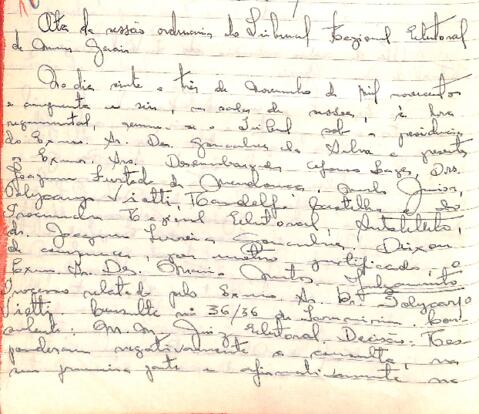 Ata da sessão ordinária do Tribunal Regional Eleitoral
de Minas Gerais
No dia vinte e três de novembro de mil novecentos
e cinquenta e seis, na sala de sessões, à hora
regimental, reuniu-se o Tribunal sob a presidência
do Exmo. Sr. Des. Gonçalves da Silva e presentes
os Exmos. Srs. Desembargador Drs.
Joaquim Furtado de Mendonça, Paulo Junior,
Polycarpo Viotti,
Procurador Regional Eleitoral,
dr. Joaquim Ferreira Gonçalves. Deixou
de comparecer, por motivo justificado, o
Exmo. Sr. Des. Julgamento
Processo relatado pelo Exmo. Sr. Dr. Polycarpo
Viotti. Consulta nº 36/36 de Con-
sulente: M. M. Juiz Eleitoral. Decisão: Res-
ponderam negativamente a consulta, na
sua primeira parte e afirmativamente na